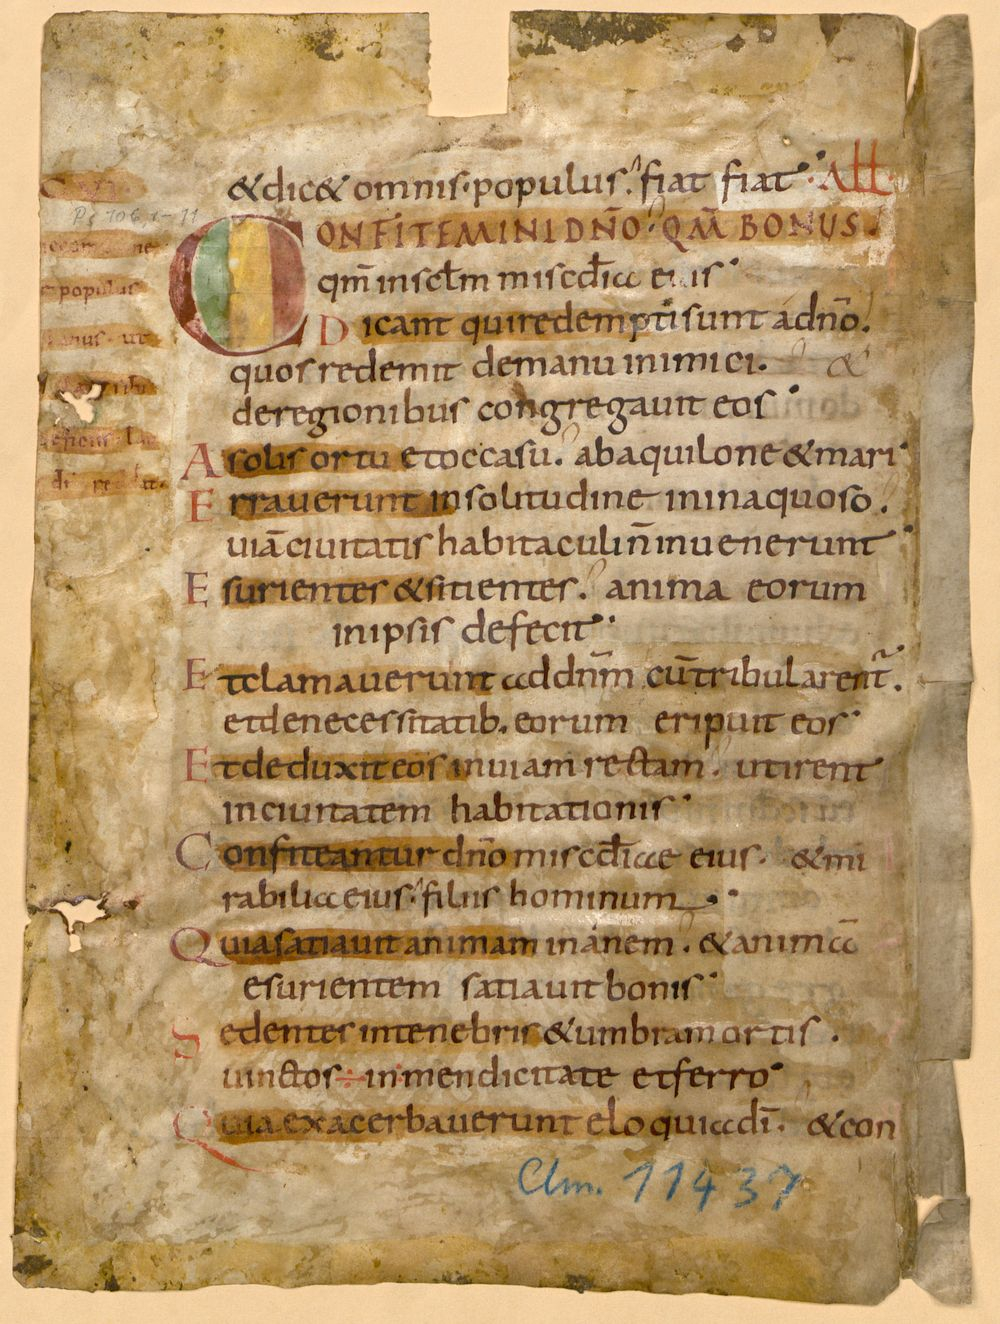 & dic& omnis populus. fiat fiat. All.
CVI.
Ps 106, 1-11
CONFITEMINI DNŌ. QM̄ BONUS.
qm̄ in sclm misc̄dia eius
Dicant qui redempti sunt a dnō.
quos redemit de manu inimici. &
de regionibus congregavit eos
A solis ortu et occasu. ab aquilone & mari
Erraverunt in solitudine in inaquoso.
viā civitatis habitaculi n̄ invenerunt
Esurientes & sitientes. anima eorum
in ipsis defecit
Et clamaverunt ad dnm̄ cū tribularent᷑.
et de necessitatib. eorum eripuit eos
Et deduxit eos in viam rectam. ut irent
in civitatem habitationis
Confiteantur dnō misc̄diae eius. & mi
rabilia eius. filiis hominum
Quia satiavit animam inanem. & animā
esurientem satiavit bonis
Sedentes in tenebris & umbra mortis.
vinctos in mendicitate et ferro
Quia exacerbaverunt eloquia dī. & con
populus
ut
Clm. 11437